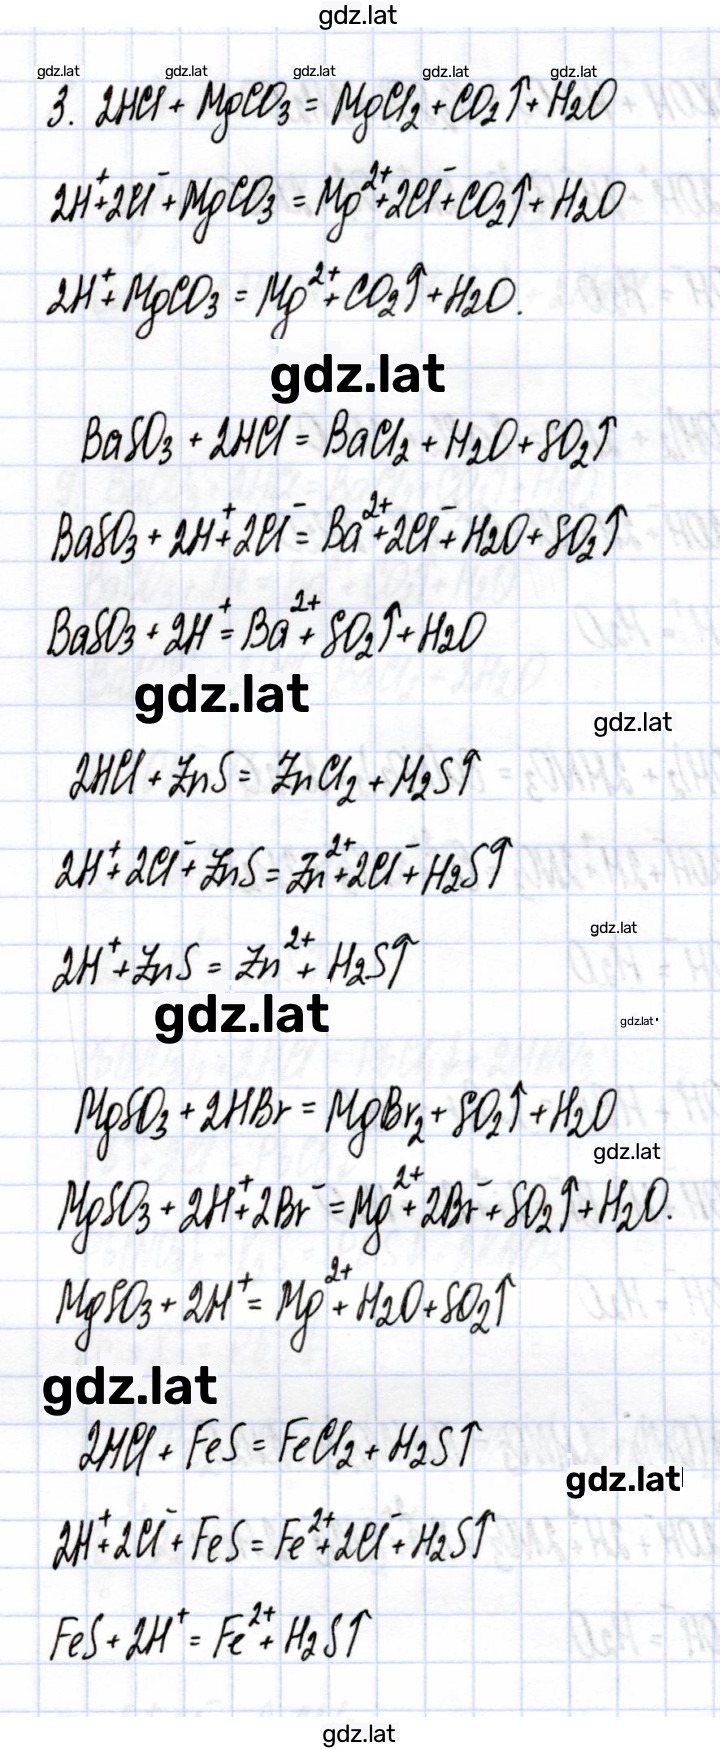 gdz.lat
gdz.lat gdz.lat gdz.lat gdz.lat gdz.lat
3. 2HCl + MgCO₃ = MgCl₂ + CO₂↑ + H₂O
2H⁺ + 2Cl⁻ + MgCO₃ = Mg²⁺ + 2Cl⁻ + CO₂↑ + H₂O
2H⁺ + MgCO₃ = Mg²⁺ + CO₂↑ + H₂O.
gdz.lat
BaSO₃ + 2HCl = BaCl₂ + H₂O + SO₂↑
BaSO₃ + 2H⁺ + 2Cl⁻ = Ba²⁺ + 2Cl⁻ + H₂O + SO₂↑
BaSO₃ + 2H⁺ = Ba²⁺ + SO₂↑ + H₂O
gdz.lat
gdz.lat
2HCl + ZnS = ZnCl₂ + H₂S↑
2H⁺ + 2Cl⁻ + ZnS = Zn²⁺ + 2Cl⁻ + H₂S↑
gdz.lat
2H⁺ + ZnS = Zn²⁺ + H₂S↑
gdz.lat
gdz.lat
MgSO₃ + 2HBr = MgBr₂ + SO₂↑ + H₂O
gdz.lat
MgSO₃ + 2H⁺ + 2Br⁻ = Mg²⁺ + 2Br⁻ + SO₂↑ + H₂O.
MgSO₃ + 2H⁺ = Mg²⁺ + H₂O + SO₂↑
gdz.lat
2HCl + FeS = FeCl₂ + H₂S↑
gdz.lat
2H⁺ + 2Cl⁻ + FeS = Fe²⁺ + 2Cl⁻ + H₂S↑
FeS + 2H⁺ = Fe²⁺ + H₂S↑
gdz.lat